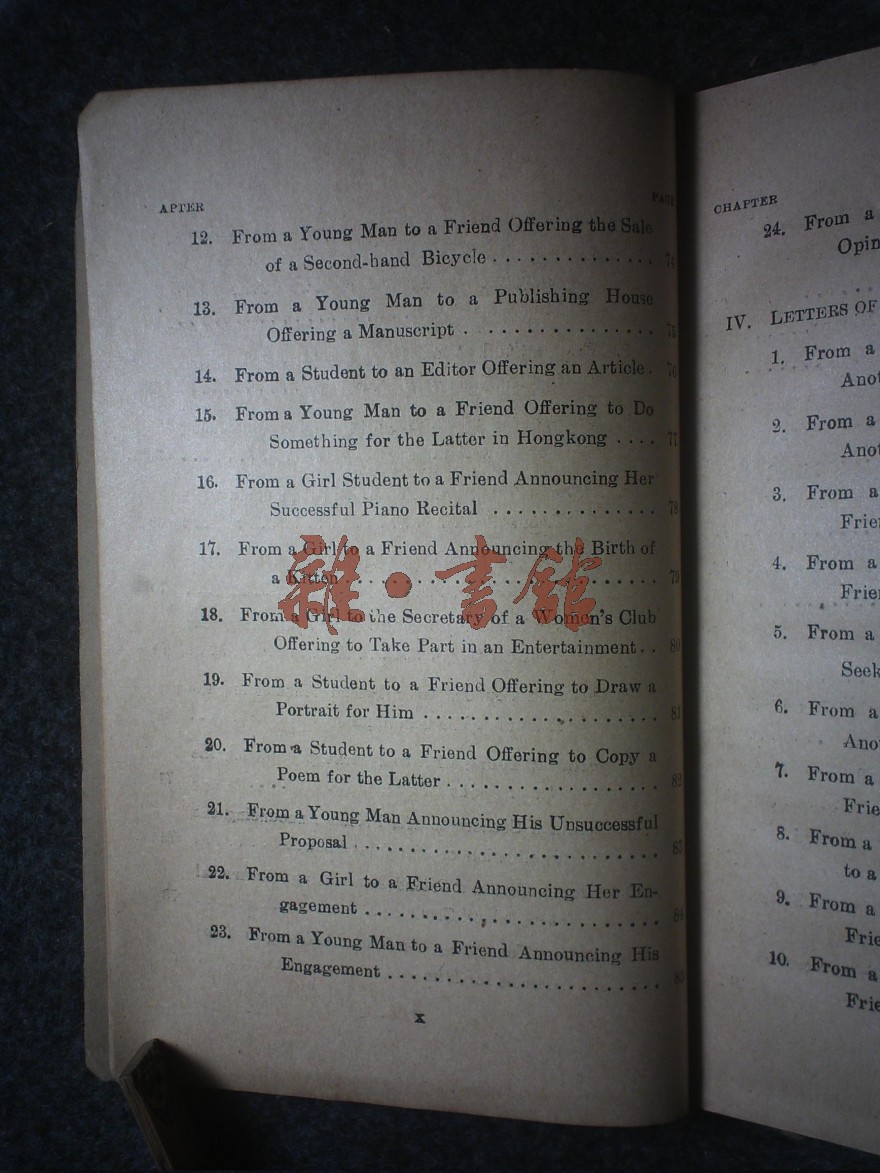 APTER PAGE
12. From a Young Man to a Friend Offering the Sale
of a Second-hand Bicycle . . . . . . . . . . . . . . 74
13. From a Young Man to a Publishing House
Offering a Manuscript . . . . . . . . . . . . . . . 75
14. From a Student to an Editor Offering an Article . 76
15. From a Young Man to a Friend Offering to Do
Something for the Latter in Hongkong . . . . 77
16. From a Girl Student to a Friend Announcing Her
Successful Piano Recital . . . . . . . . . . . . . . 78
17. From a Girl to a Friend Announcing the Birth of
a Kitten . . . . . . . . . . . . . . . . . . . . . . . . . . 79
18. From a Girl to the Secretary of a Women's Club
Offering to Take Part in an Entertainment . . 80
19. From a Student to a Friend Offering to Draw a
Portrait for Him . . . . . . . . . . . . . . . . . . . . 81
20. From a Student to a Friend Offering to Copy a
Poem for the Latter . . . . . . . . . . . . . . . . . . 82
21. From a Young Man Announcing His Unsuccessful
Proposal . . . . . . . . . . . . . . . . . . . . . . . . . . 83
22. From a Girl to a Friend Announcing Her En-
gagement . . . . . . . . . . . . . . . . . . . . . . . . . 84
23. From a Young Man to a Friend Announcing His
Engagement . . . . . . . . . . . . . . . . . . . . . . . 85
x
雜·書館
CHAPTER
24. From a
Opin
IV. LETTERS OF
1. From a
Anot
2. From a
Anot
3. From a
Frie
4. From a
Frie
5. From a
Seek
6. From a
Ano
7. From a
Frie
8. From a
to a
9. From a
Frie
10. From a
Frie